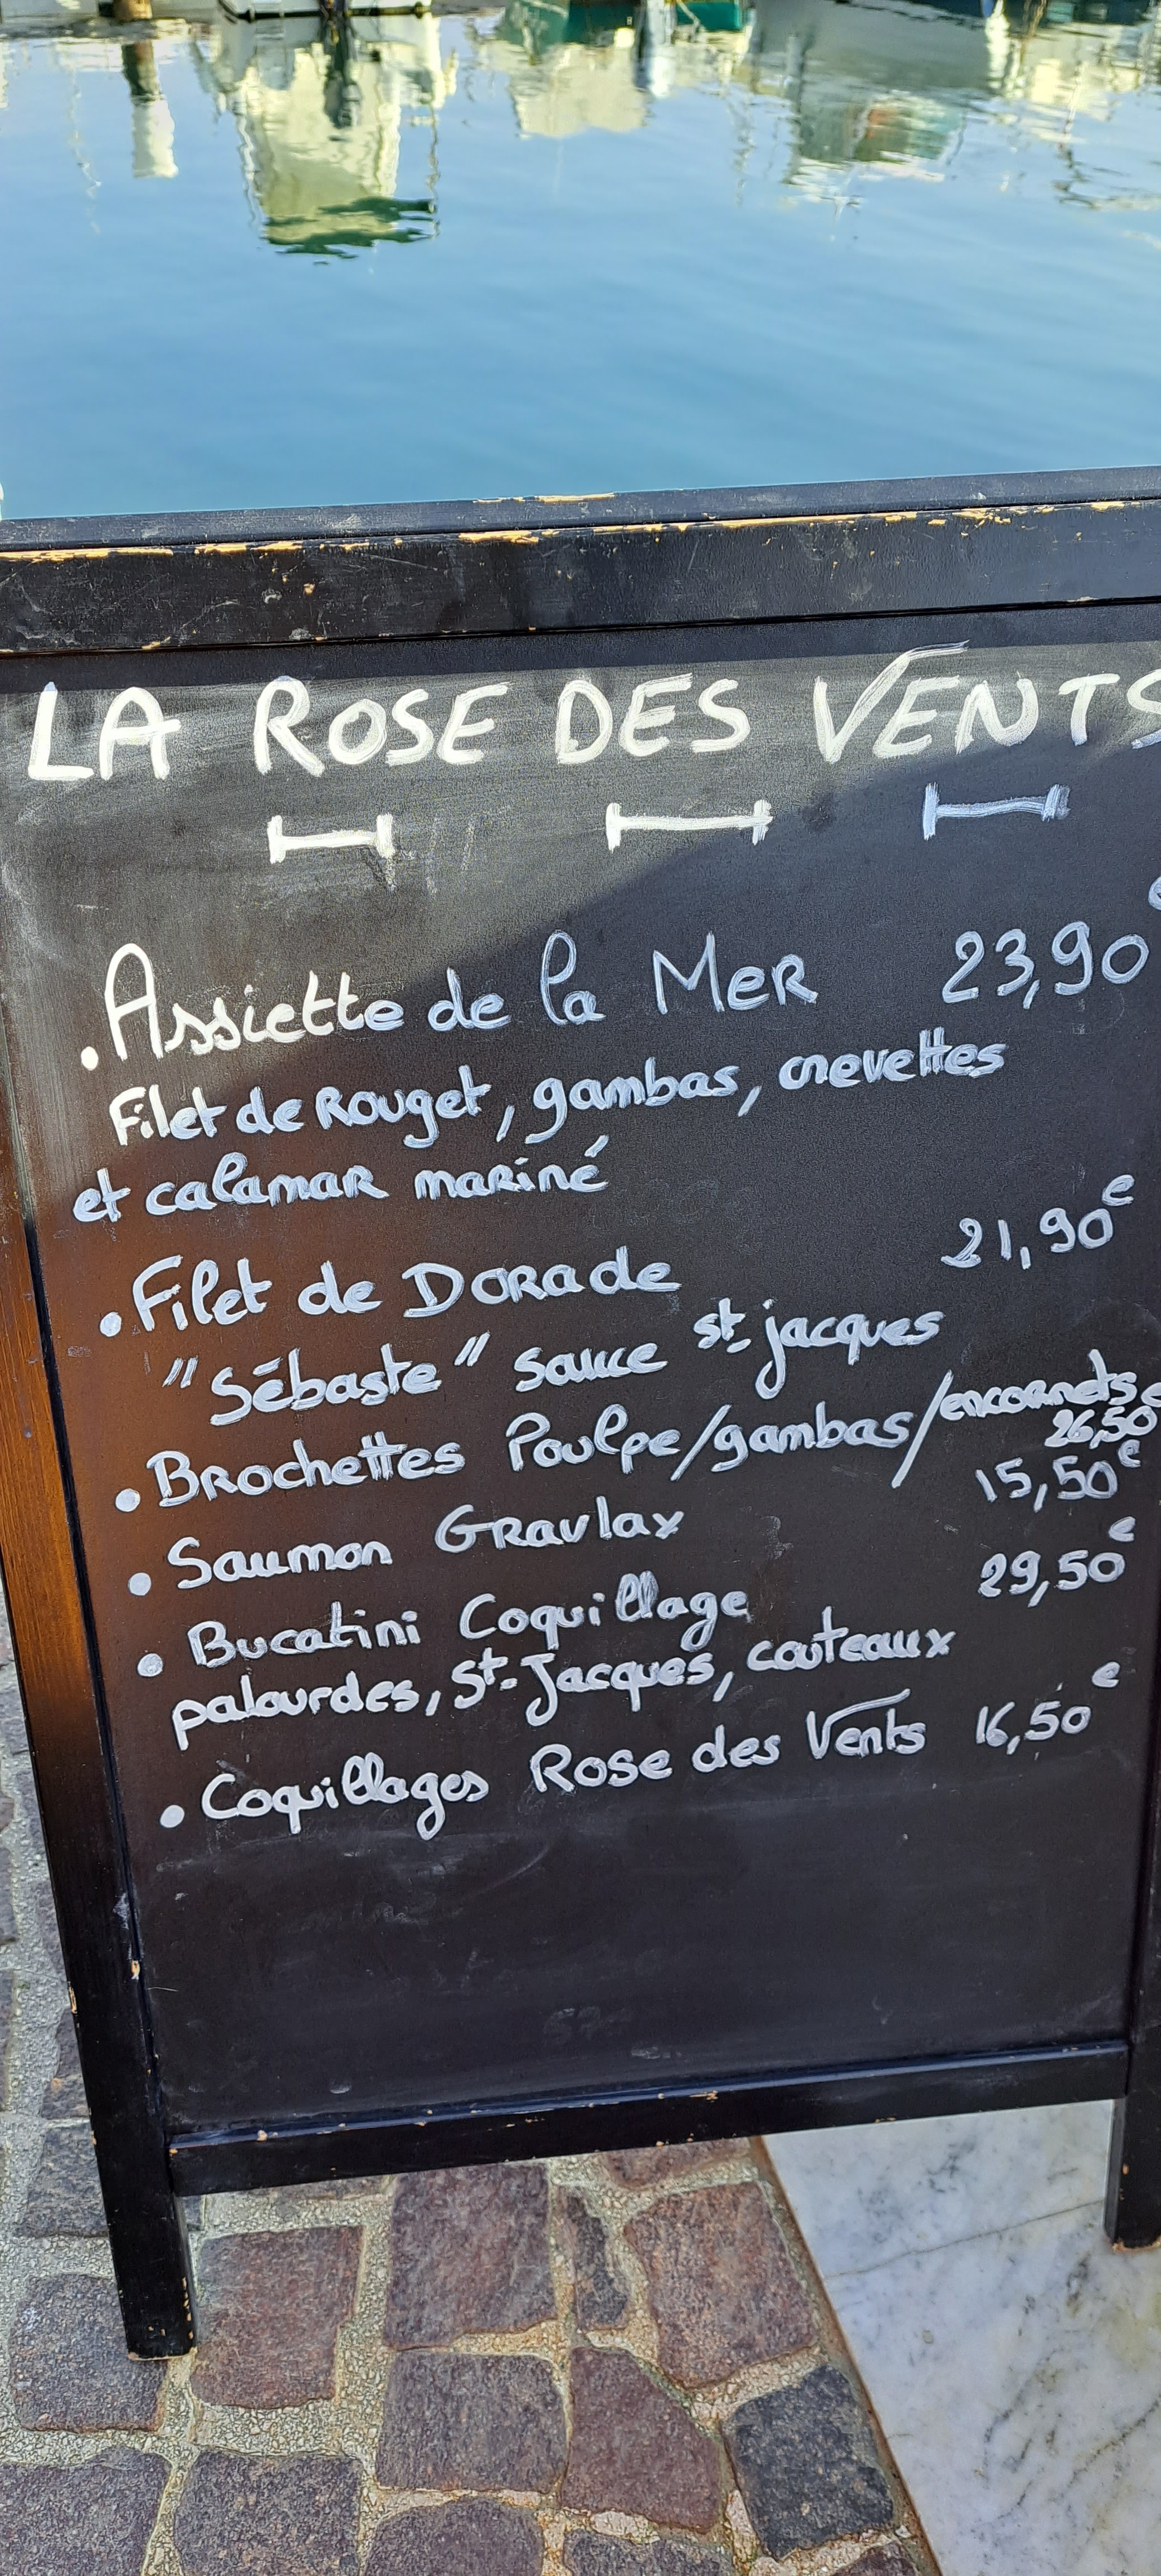 LA ROSE DES VENTS
. Assiette de la MER 23,90 €
Filet de Rouget, gambas, crevettes
et calamar mariné
. Filet de DORade 21,90€
"Sébaste" sauce st-jacques
. Brochettes Poulpe/gambas/encornets
26,50€
. Saumon Gravlax 15,50€
. Bucatini Coquillage 29,50€
palourdes, St-Jacques, couteaux
. Coquillages Rose des Vents 16,50€